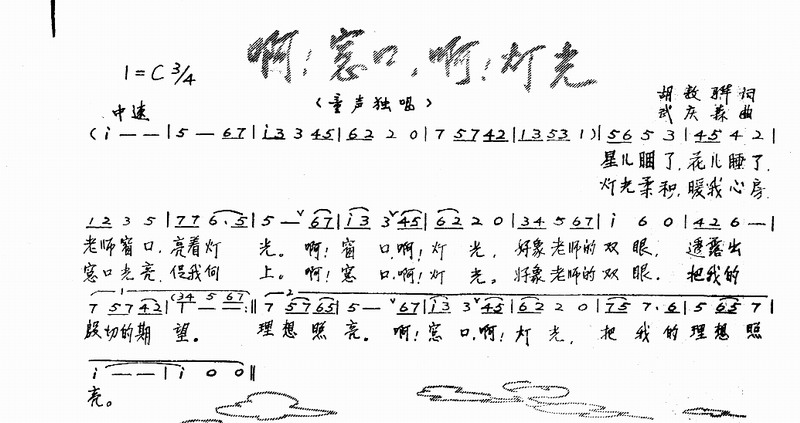 啊！窗口，啊！灯光
1=C 3/4
（童声独唱）
胡敦骅词
中速
武庆森曲
(i — — | 5 — 67 | i3 3 45 | 62 2 0 | 7 57 42 | 13 53 1) | 56 5 3 | 45 4 2 |
星儿睏了，花儿睡了，
灯光柔和，暖我心房，
12 3 5 | 77 6·5 | 5 — ∨67 | i3 3 ∨45 | 62 2 0 | 34 5 67 | i 6 0 | 42 6 — |
老师窗口，亮着灯 光。啊！窗 口，啊！灯 光，好象老师的双 眼， 透露出
窗口光亮，促我向 上。啊！窗 口，啊！灯 光。好象老师的双 眼， 把我的
1 2
7 57 42 | 1 — — (34 5 67 :‖ 7 57 65 | 5 — ∨67 | i3 3 ∨45 | 62 2 0 | 75 7·6 | 5 65 7 |
殷切的期 望。 理想照 亮。啊！窗 口，啊！灯 光，把 我的理想照
i — — | i 0 0 ‖
亮。